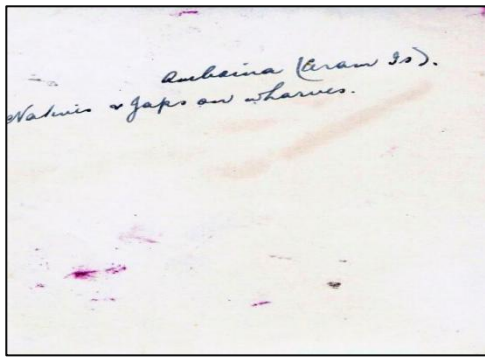 Amboina (Ceram Is).
Natives & Japs on wharves.